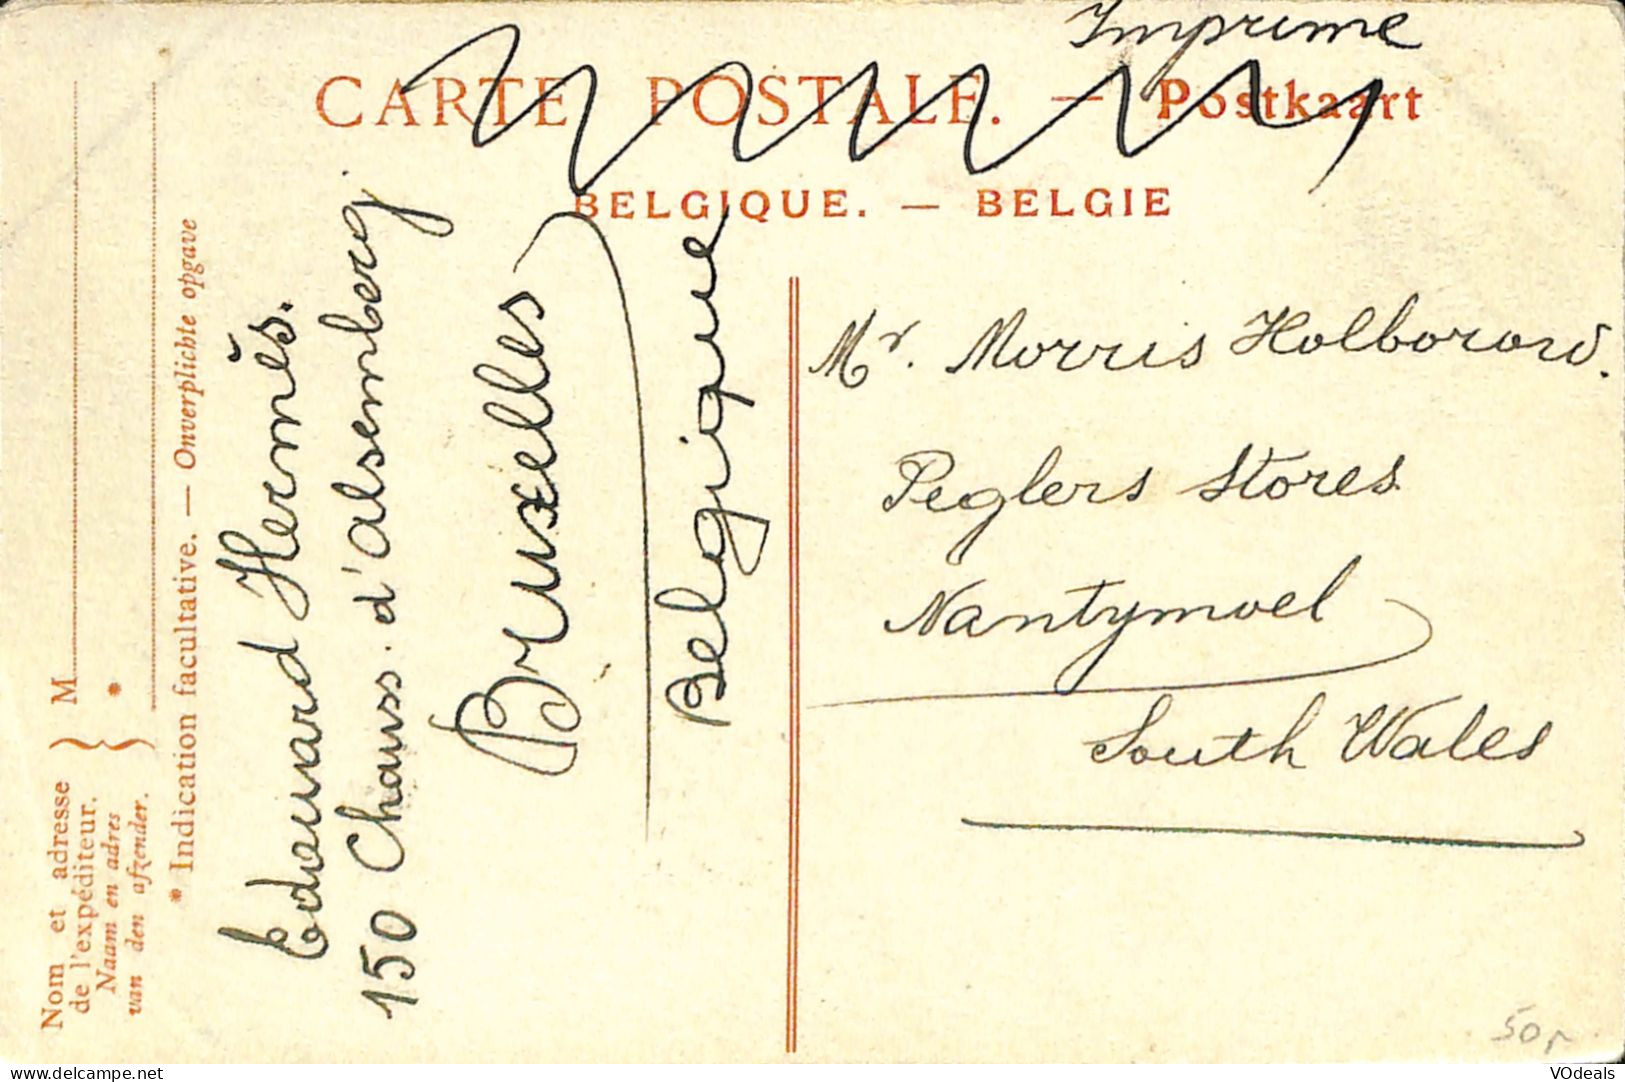 Imprime
CARTE POSTALE. — Postkaart
BELGIQUE. — BELGIE
Nom et adresse
de l'expéditeur.
Naam en adres
van den afzender.
M
*
* Indication facultative. — Onverplichte opgave
Edouard Hermès.
150 Chauss. d'Alsemberg.
Bruxelles
Belgique
Mr. Morris Holborow.
Peglers Stores
Nantymoel
South Wales
50
VOdeals